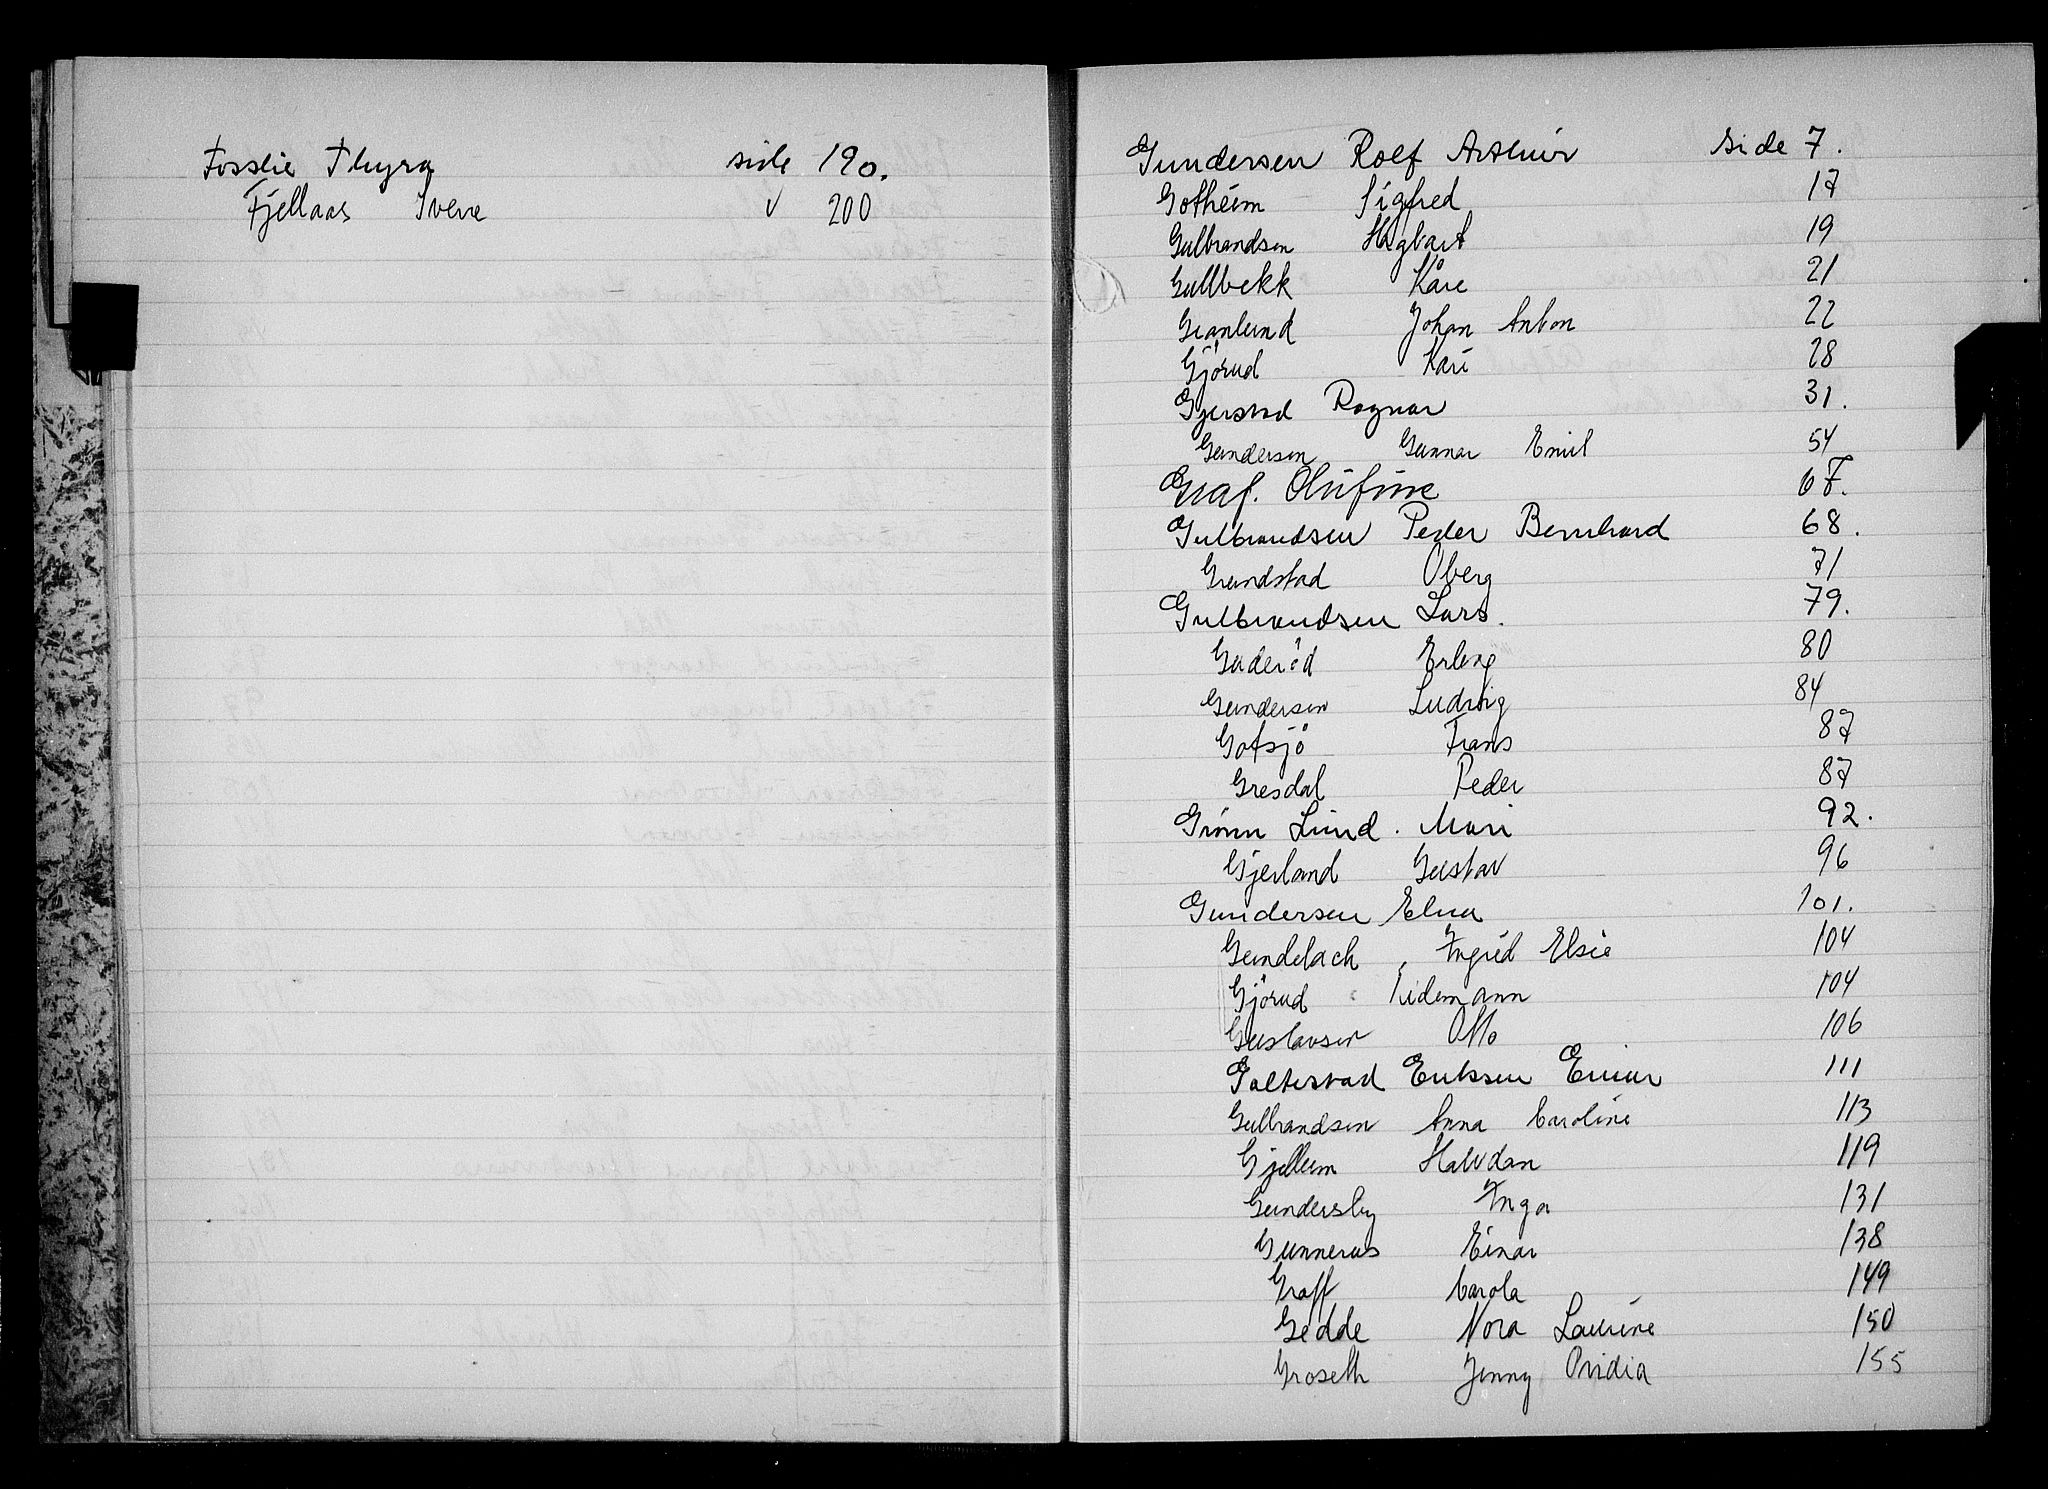 Fosslie Thyra side 190.
Fjellaas Svere v 200
Gundersen Rolf Arthur side 7.
Gotheim Sigfred 17
Gulbrandsen Hagbart 19
Gullbekk Kåre 21
Granlund Johan Anton 22
Gjörud Kari 28
Gjerstad Ragnar 31.
Gundersen Gunnar Emil 54
Graf. Olufine 67.
Gulbrandsen Peder Bernhard 68.
Grundstad Oberg 71
Gulbrandsen Lars. 79.
Guderöd Erling 80
Gundersen Ludvig 84
Gotsjö Frans 87
Gresdal Peder 87
Grönn Lund. Mari 92.
Gjerland Gustav 96
Gundersen Elna 101.
Gundelach Ingrid Elsie 104
Gjörud Tidemann 104
Gustavsen Otto 106
Galtestad Eriksen Einar 111
Gulbrandsen Anna Caroline 113
Gjellum Halvdan 119
Gundersby Inga 131
Gunnerus Einar 138
Graff Carola 149
Gedde Nora Laurine 150
Groseth Jenny Ovidia 155